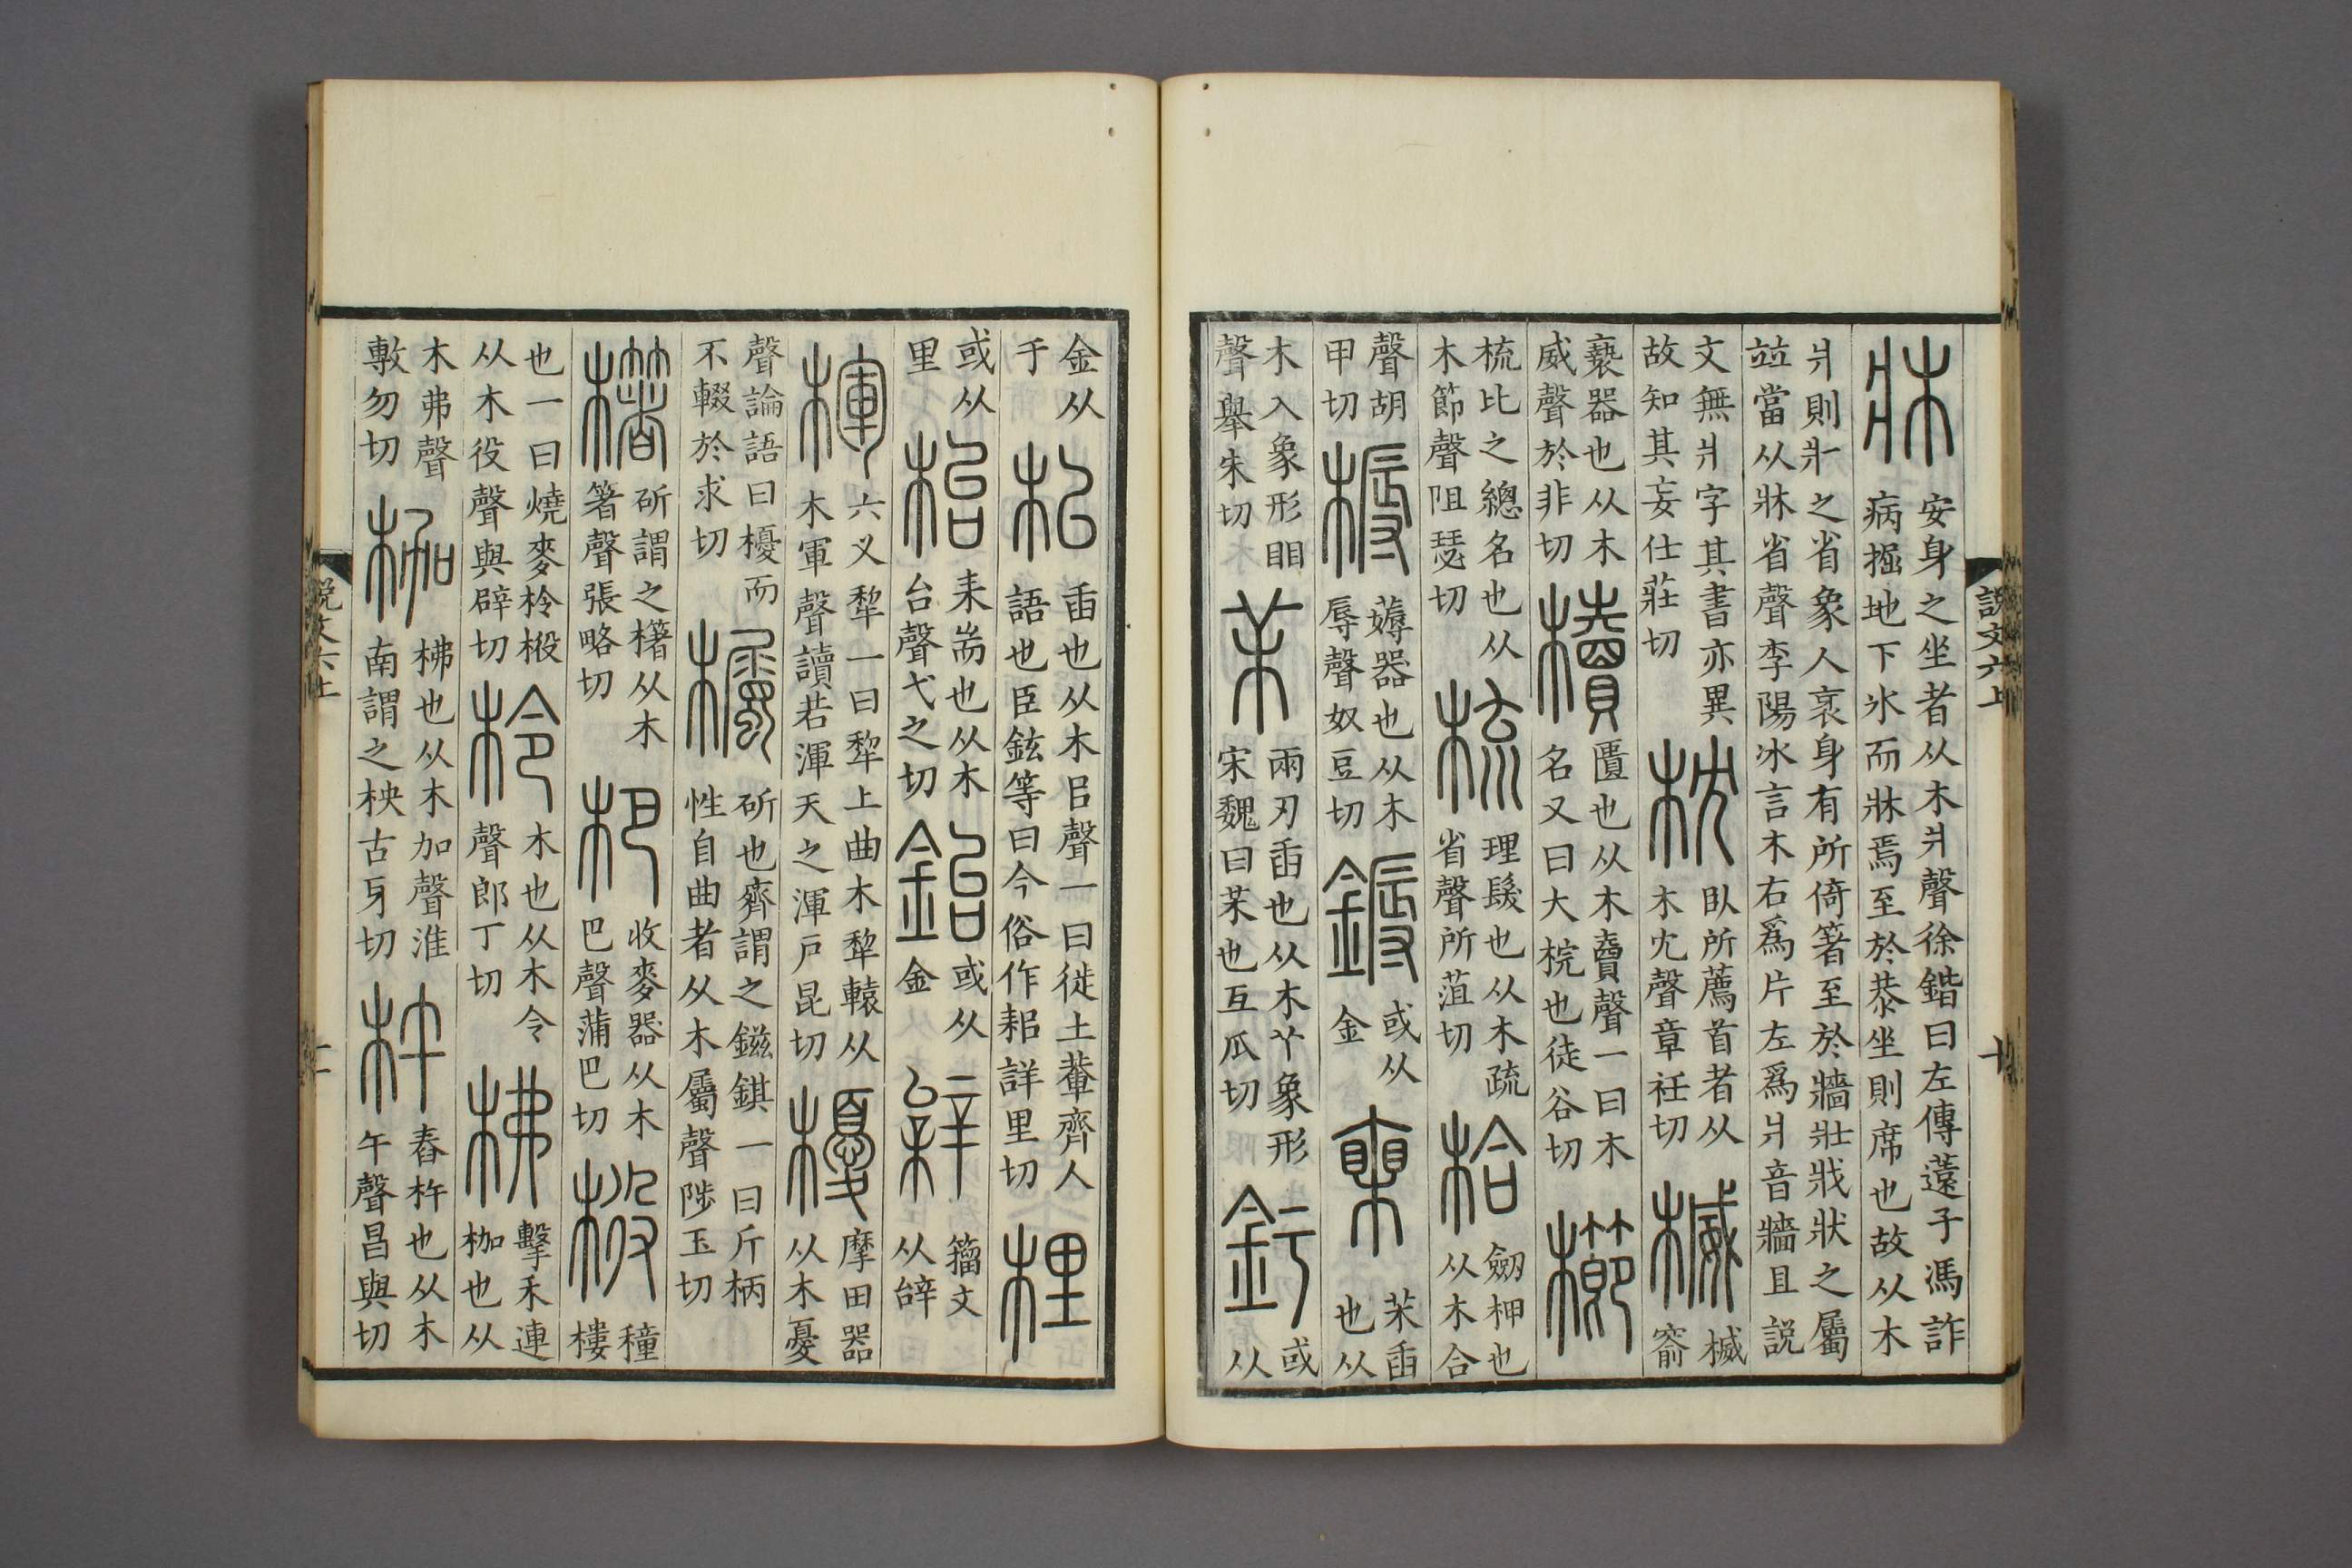 說文六上 十
牀 安身之坐者从木爿聲徐鍇曰左傳薳子馮詐病掘地下冰而牀焉至於恭坐則席也故从木
爿則爿之省象人衺身有所倚箸至於牆壯戕狀之屬竝當从牀省聲李陽冰言木右爲片左爲爿音牆且說
文無爿字其書亦異故知其妄仕莊切 枕 臥所薦首者从木冘聲章衽切 楲 楲窬
褻器也从木威聲於非切 櫝 匱也从木𧶠聲一曰木名又曰大梡也徒谷切 櫛
梳比之總名也从木節聲阻瑟切 梳 理髮也从木疏省聲所菹切 枱 劒柙也从木合
聲胡甲切 槈 薅器也从木辱聲奴豆切 鎒 或从金 茉臿也从
木入象形䀠聲舉朱切 茉 兩刃臿也从木丫象形宋魏曰茉也互瓜切 釫 或从
金从于 㭒 臿也从木㠯聲一曰徙土輂齊人語也臣鉉等曰今俗作耜詳里切 梩
或从里 枱 耒耑也从木台聲弋之切 鈶 或从金 𨐓 籀文从辝
楎 六叉犂一曰犂上曲木犂轅从木軍聲讀若渾天之渾戶昆切 櫌 摩田器从木憂
聲論語曰櫌而不輟於求切 欘 斫也齊謂之鎡錤一曰斤柄性自曲者从木屬聲陟玉切
櫡 斫謂之櫡从木箸聲張略切 杷 收麥器从木巴聲蒲巴切 𣔉 穜樓
也一曰燒麥柃𣔉从木役聲與辟切 柃 木也从木令聲郎丁切 柫 擊禾連枷也从
木弗聲敷勿切 枷 柫也从木加聲淮南謂之柍古牙切 杵 舂杵也从木午聲昌與切
說文六上 十一